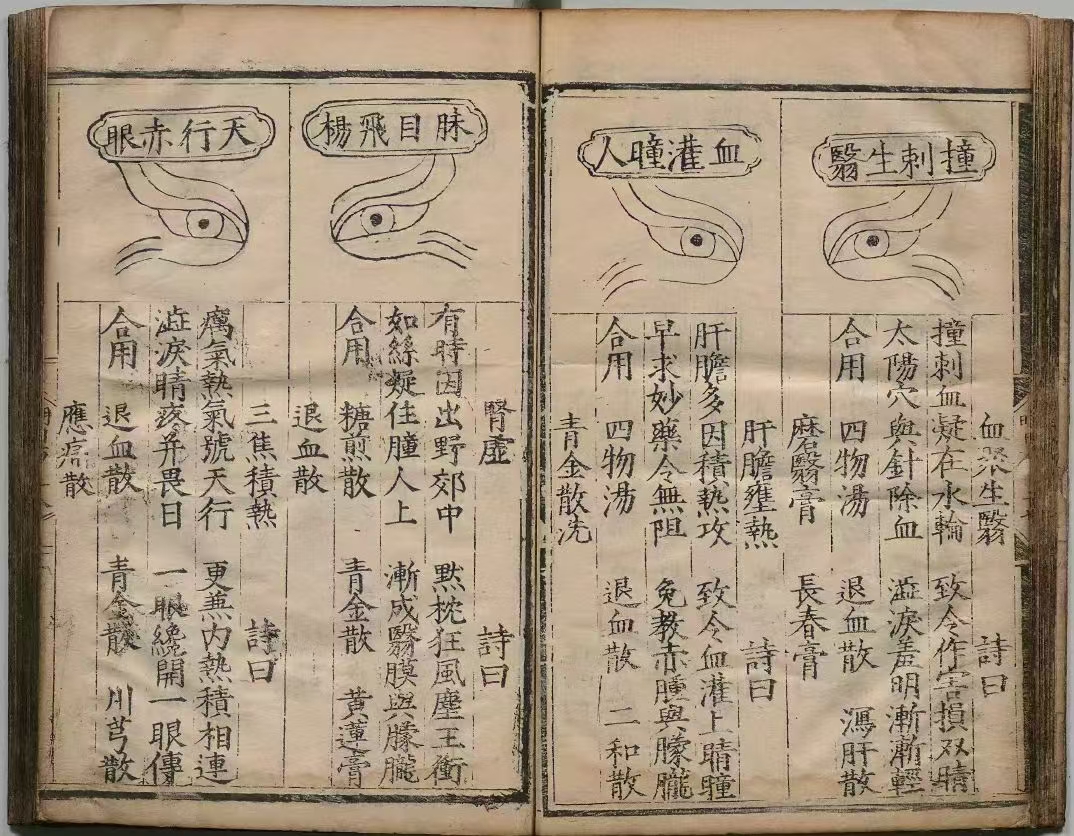 撞刺生翳
血聚生翳　詩曰
撞刺血凝在水輪　致令作害損双睛
太陽穴與針除血　澁淚羞明漸漸輕
合用　四物湯　退血散　瀉肝散
磨翳膏　長春膏
血灌瞳人
肝膽壅熱　詩曰
肝膽多因積熱攻　致令血灌上睛瞳
早求妙藥令無阻　免教赤腫與朦朧
合用　四物湯　退血散　二和散
青金散洗
眯目飛楊
腎虛　詩曰
有時因出野郊中　黙枕狂風塵王衝
如絲凝住瞳人上　漸成翳膜與朦朧
合用　糖煎散　青金散　黃蓮膏
退血散
天行赤眼
三焦積熱　詩曰
癘氣熱氣號天行　更兼内熱積相連
澁淚睛疼并畏日　一眼纔開一眼傳
合用　退血散　青金散　川芎散
應痛散